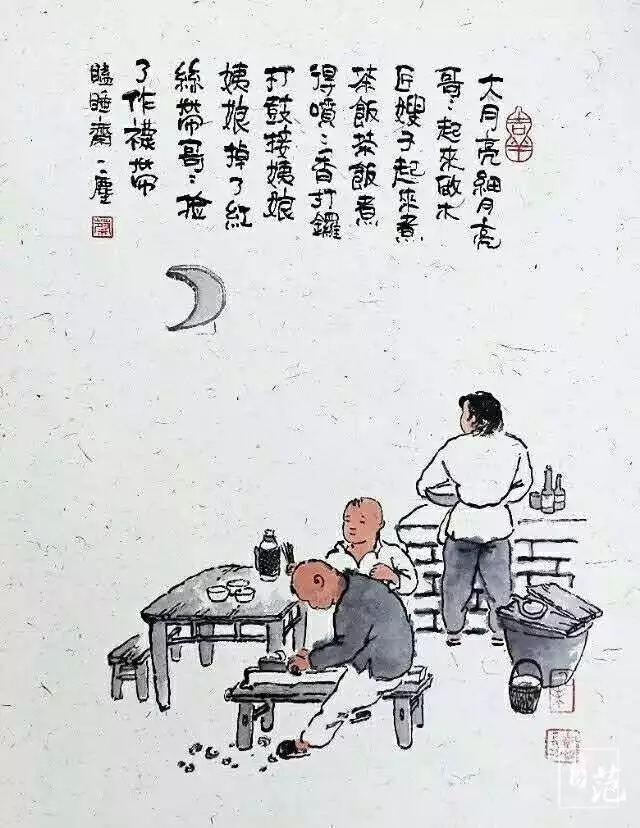 大月亮細月亮
哥々起來做木
匠嫂子起來煮
茶飯茶飯煮
得噴々香打鑼
打鼓接姨娘
姨娘掉了紅
絲帶哥々撿
了作襪帶
瞌睡齋一塵
吉羊